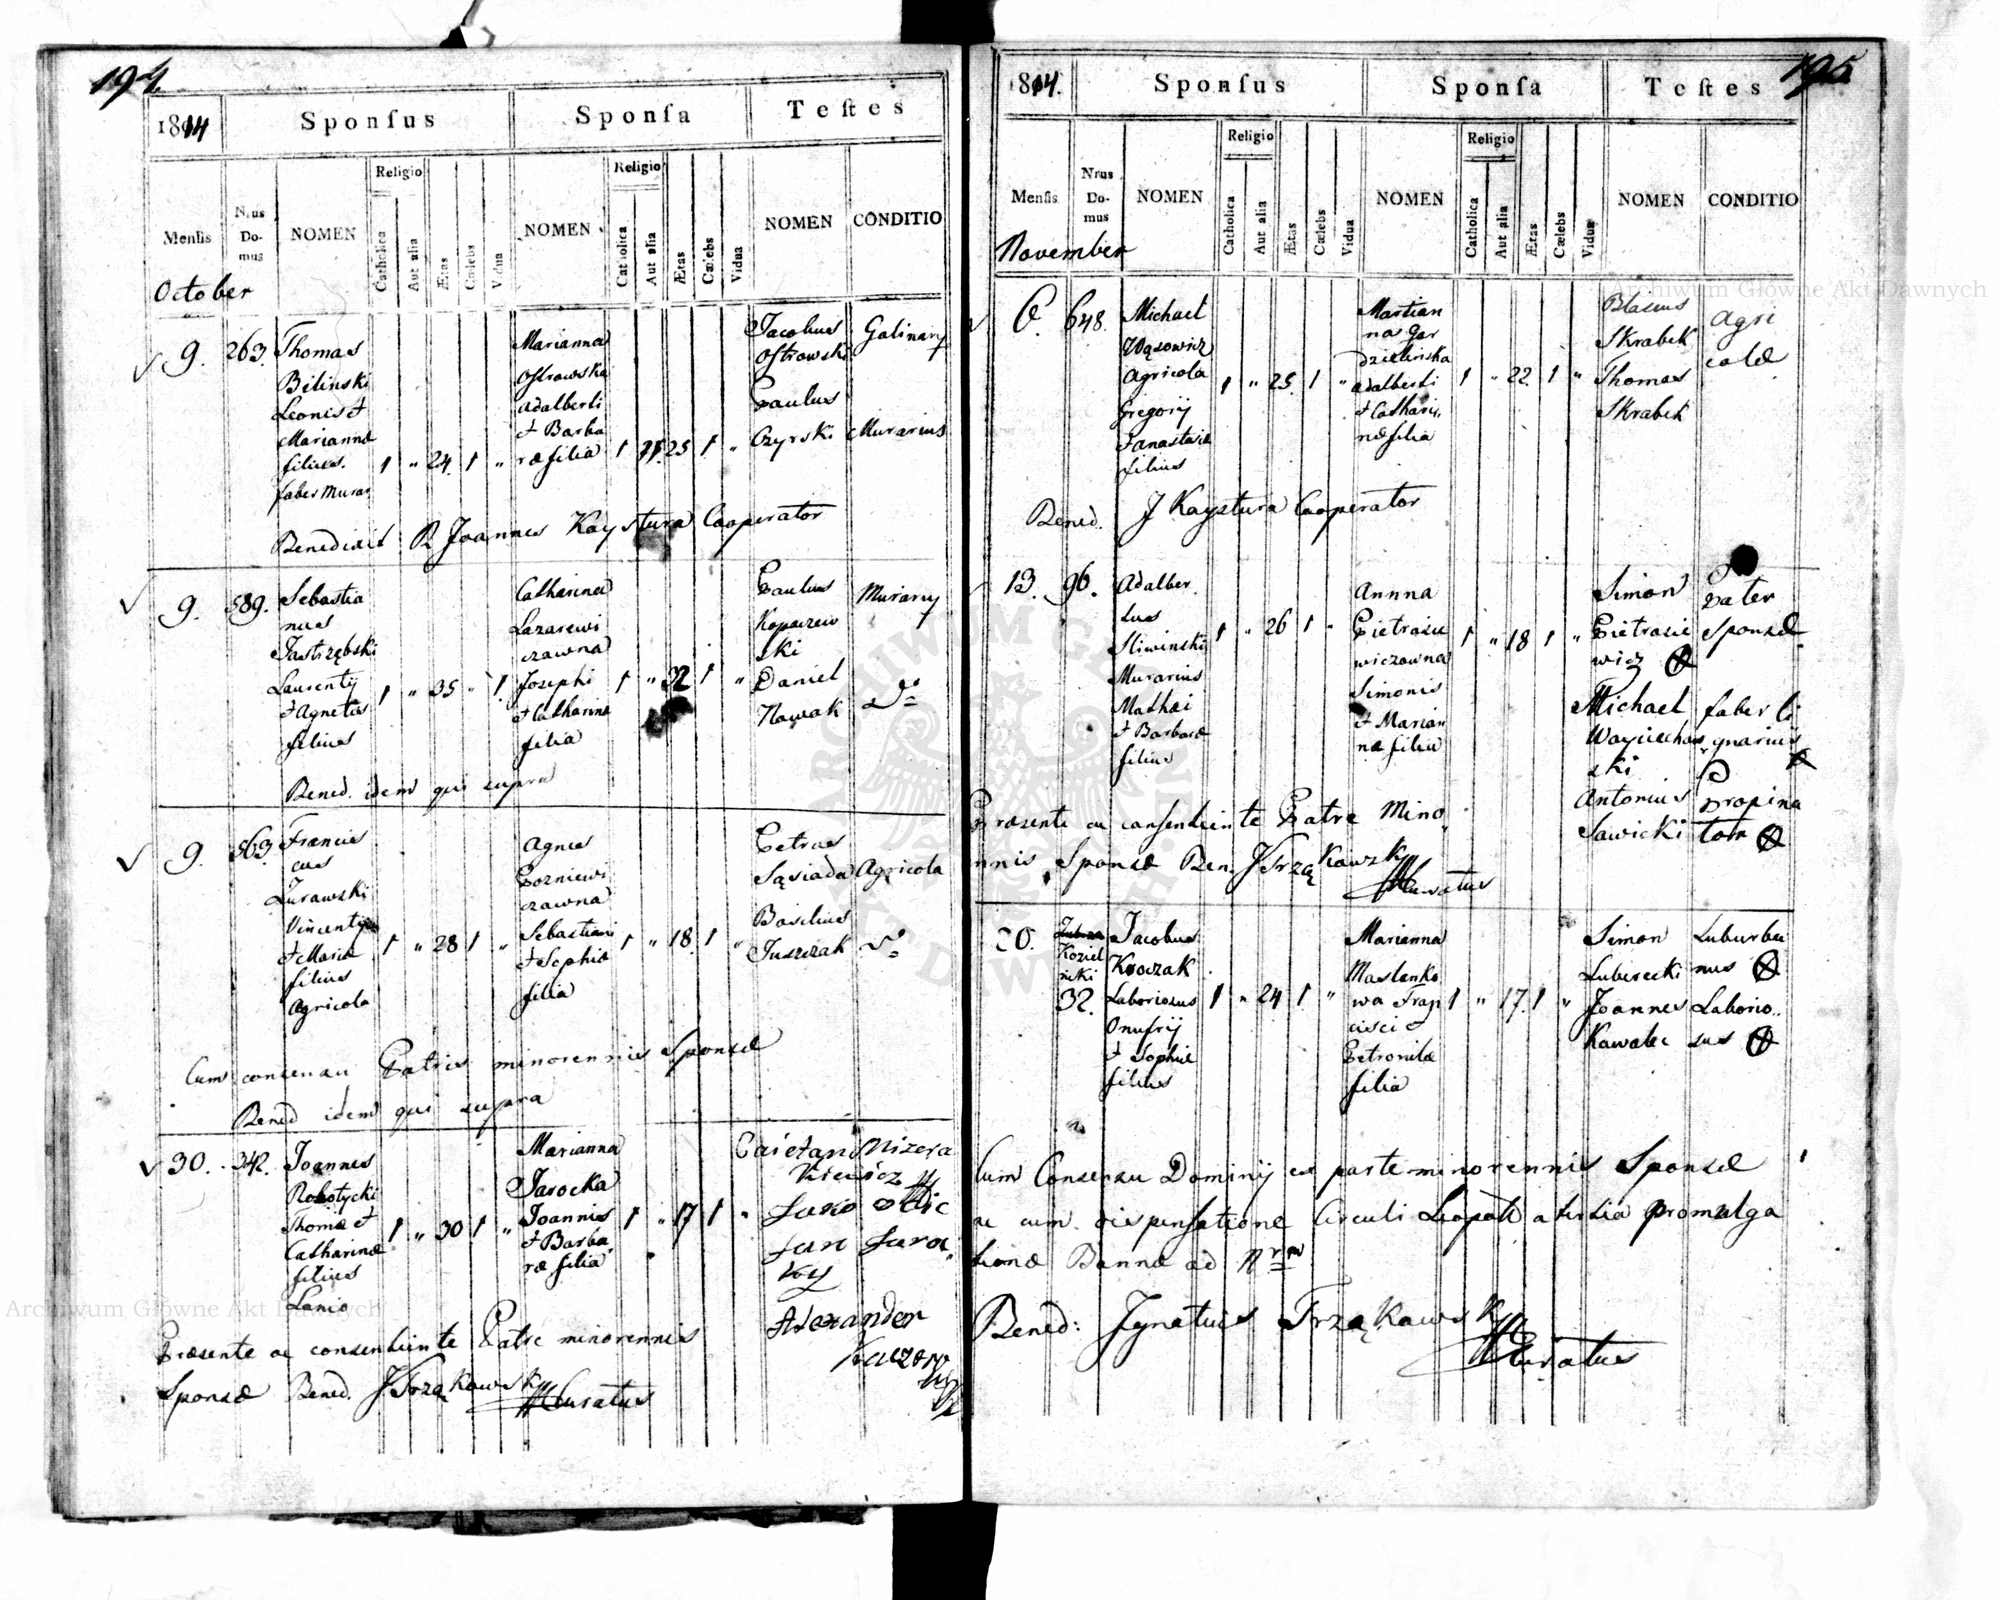 194.
1814
Sponsus
Sponsa
Testes
Mensis
Nrus Domus
NOMEN
Religio
Catholica
Aut alia
Ætas
Cælebs
Vidua
NOMEN
Religio
Catholica
Aut alia
Ætas
Cælebs
Vidua
NOMEN
CONDITIO
October
9. 263.
Thomas
Bilinski
Leonis et
Mariannæ
filius.
faber Murar
1 " 24 1 "
Marianna
Ostrowska
Adalberti
et Barba
ræ filia
1 25 1 "
Jacobus
Ostrowski
Paulus
Czyrski
Murarius
Benedixit R Joannes Kaystura Cooperator
9. 589.
Sebastia
nus
Jastrzębski
Laurentij
et Agnetis
filius
1 " 35 " 1
Catharina
Lazarewi
czawna
Josephi
et Catharinæ
filia
1 " 32 1 "
Paulus
Kopaczew
ski
Daniel
Nowak
Murarij
do
Bened. idem qui supra
9. 563.
Francis
cus
Zurawski
Vincentij
et Mariæ
filius
Agricola
1 " 28 1 "
Agnes
Pozniewi
czawna
Sebastiani
et Sophiæ
filia
1 " 18 1 "
Petrus
Sąsiada
Agricola
Basilius
Juszczak
do
Cum consensu Patris minorennis Sponsæ
Bened idem qui supra
30. 342.
Joannes
Robotycki
Thomæ et
Catharinæ
filius
Lanio
1 " 30 1 "
Marianna
Jarocka
Joannis
et Barba
ræ filia
1 " 17 1 "
Caietan Mizera
kiewicz
Jan Jaro
Alexander
Præsente ac consentiente Patre minorennis
Sponsæ Bened. J Trząkowski Curatus
195
1814.
Sponsus
Sponsa
Testes
Mensis
Nrus Domus
NOMEN
Religio
Catholica
Aut alia
Ætas
Cælebs
Vidua
NOMEN
Religio
Catholica
Aut alia
Ætas
Cælebs
Vidua
NOMEN
CONDITIO
November
6. 648.
Michael
Wąsowicz
Agricola
Gregorij
et Anastasiæ
filius
1 " 25 1 "
Martian
na Gar
dzielinska
Adalberti
et Cathari
næ filia
1 " 22 1 "
Blasius
Skrabek
Thomas
Skrabek
Agri
colæ
Bened. J Kaystura Cooperator
13. 96.
Adalber
tus
Sliwinski
Murarius
Mathæi
et Barbaræ
filius
1 " 26 1 "
Annna
Pietrasie
wiczowna
Simonis
et Marian
næ filia
1 " 18 1 "
Simon
Pietrasie
wicz
Pater
Sponsæ
Michael
Woyciechow
ski
faber li
gnarius
Antonius
Sawicki
Propina
tor
Præsente ac consentiente Patre Mino
rennis Sponsæ Ben. J Trząkowski
Curatus
20.
Koziel
nicki
32.
Jacobus
Kroczak
Laboriosus
Onufrij
et Sophiæ
filius
1 " 24 1 "
Marianna
Maslanko
wa Fran
cisci et
Petronilæ
filia
1 " 17 1 "
Simon
Luberecki
Suburba
nus
Joannes
Kawalec
Laborio
sus
Cum Consensu Dominij ex parte minorennis Sponsæ
ac cum dispensatione Circuli Leopol a tertia promulga
tione Bannæ ad Nrum
Bened: Ignatius Trząkowski
Curatus
Archiwum Główne Akt Dawnych
Archiwum Główne Akt Dawnych